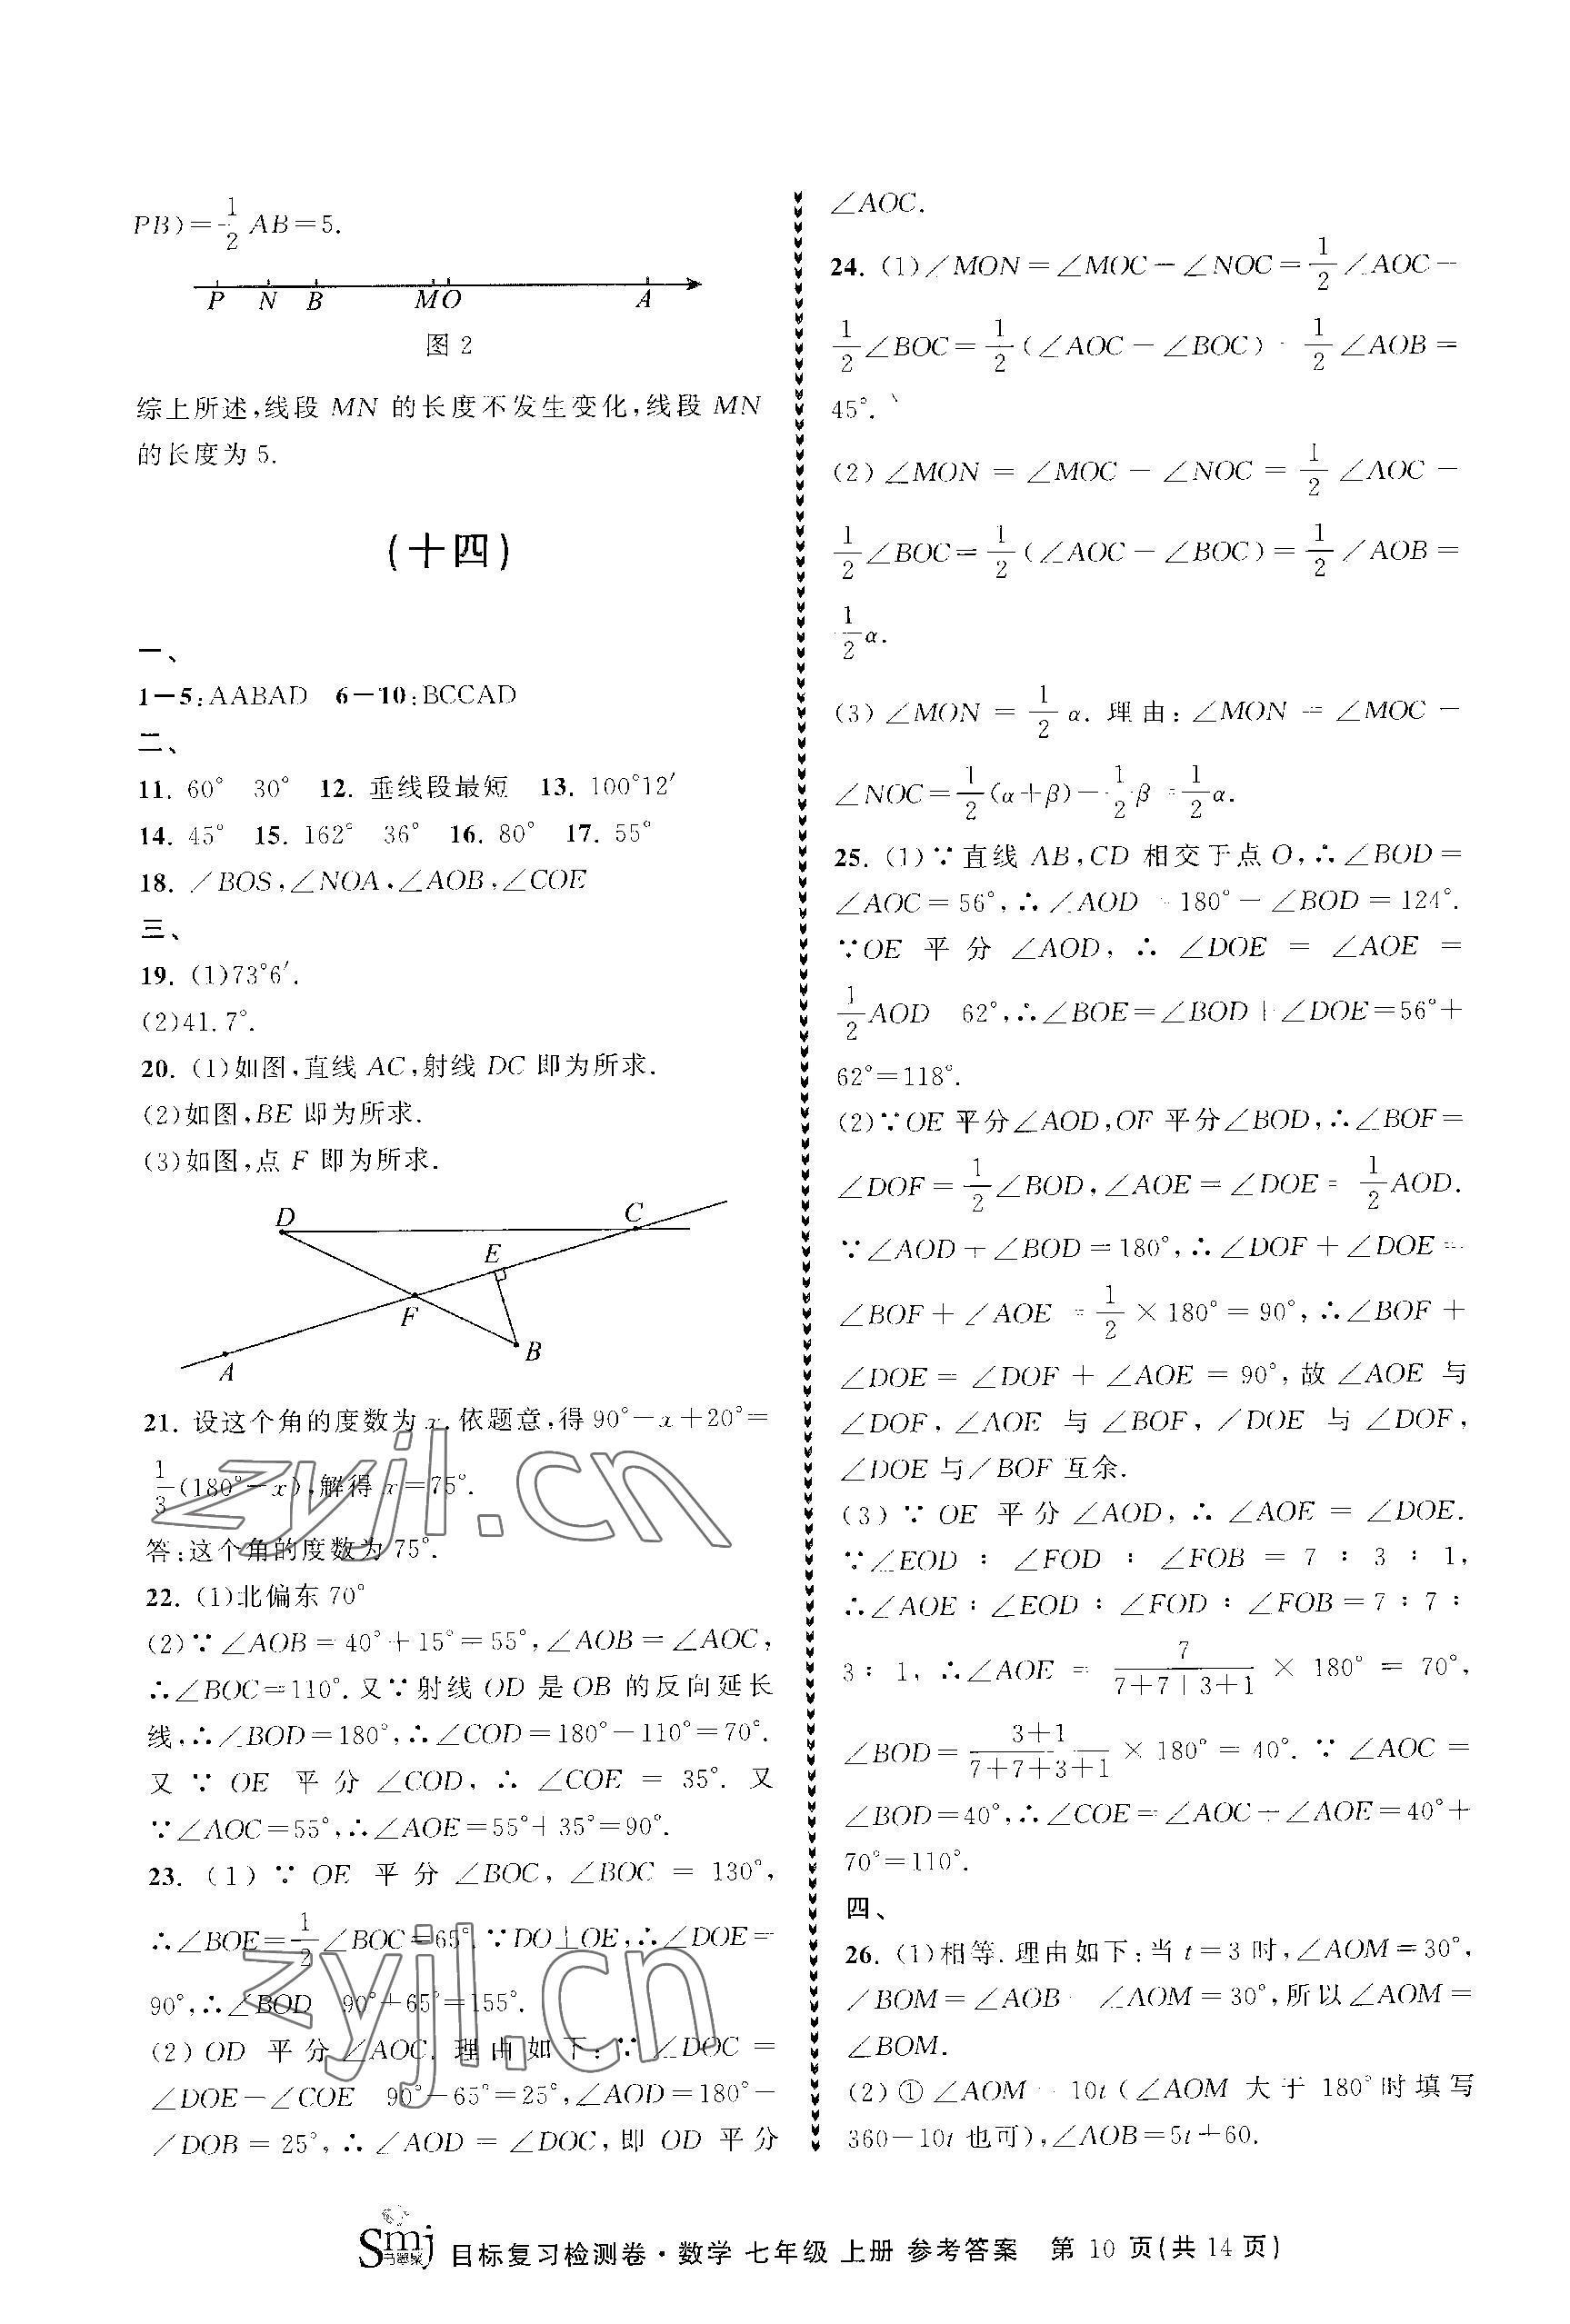 PB)=1/2 AB=5.
P N B M O A
图 2
综上所述,线段 MN 的长度不发生变化,线段 MN
的长度为 5.
(十四)
一、
1—5:AABAD 6—10:BCCAD
二、
11. 60° 30° 12. 垂线段最短 13. 100°12′
14. 45° 15. 162° 36° 16. 80° 17. 55°
18. ∠BOS,∠NOA,∠AOB,∠COE
三、
19. (1)73°6′.
(2)41.7°.
20. (1)如图,直线 AC,射线 DC 即为所求.
(2)如图,BE 即为所求.
(3)如图,点 F 即为所求.
D C
E
F
B
A
21. 设这个角的度数为 x,依题意,得 90°−x+20°=
1/3(180°−x),解得 x=75°.
答:这个角的度数为 75°.
22. (1)北偏东 70°
(2)∵∠AOB=40°+15°=55°,∠AOB=∠AOC,
∴∠BOC=110°.又∵射线 OD 是 OB 的反向延长
线,∴∠BOD=180°,∴∠COD=180°−110°=70°.
又∵OE 平分∠COD,∴∠COE=35°.又
∵∠AOC=55°,∴∠AOE=55°+35°=90°.
23. (1)∵OE 平分∠BOC,∠BOC=130°,
∴∠BOE=1/2∠BOC=65°.∵DO⊥OE,∴∠DOE=
90°,∴∠BOD 90°+65°=155°.
(2)OD 平分∠AOC.理由如下:∵∠DOC=
∠DOE−∠COE 90°−65°=25°,∠AOD=180°−
∠DOB=25°,∴∠AOD=∠DOC,即 OD 平分
∠AOC.
24. (1)∠MON=∠MOC−∠NOC=1/2∠AOC−
1/2∠BOC=1/2(∠AOC−∠BOC) 1/2∠AOB=
45°.
(2)∠MON=∠MOC−∠NOC=1/2∠AOC−
1/2∠BOC=1/2(∠AOC−∠BOC)=1/2∠AOB=
1/2α.
(3)∠MON=1/2α.理由:∠MON=∠MOC−
∠NOC=1/2(α+β)−1/2β=1/2α.
25. (1)∵直线 AB,CD 相交于点 O,∴∠BOD=
∠AOC=56°,∴∠AOD 180°−∠BOD=124°.
∵OE 平分∠AOD,∴∠DOE=∠AOE=
1/2AOD 62°,∴∠BOE=∠BOD+∠DOE=56°+
62°=118°.
(2)∵OE 平分∠AOD,OF 平分∠BOD,∴∠BOF=
∠DOF=1/2∠BOD,∠AOE=∠DOE=1/2AOD.
∵∠AOD+∠BOD=180°,∴∠DOF+∠DOE=
∠BOF+∠AOE=1/2×180°=90°,∴∠BOF+
∠DOE=∠DOF+∠AOE=90°,故∠AOE 与
∠DOF,∠AOE 与∠BOF,∠DOE 与∠DOF,
∠DOE 与∠BOF 互余.
(3)∵OE 平分∠AOD,∴∠AOE=∠DOE.
∵∠EOD∶∠FOD∶∠FOB=7∶3∶1,
∴∠AOE∶∠EOD∶∠FOD∶∠FOB=7∶7∶
3∶1,∴∠AOE=7/(7+7+3+1)×180°=70°,
∠BOD=(3+1)/(7+7+3+1)×180°=40°.∵∠AOC=
∠BOD=40°,∴∠COE=∠AOC+∠AOE=40°+
70°=110°.
四、
26. (1)相等.理由如下:当 t=3 时,∠AOM=30°,
∠BOM=∠AOB−∠AOM=30°,所以∠AOM=
∠BOM.
(2)①∠AOM 10t(∠AOM 大于 180°时填写
360−10t 也可),∠AOB=5t+60.
zyjl.cn
zyjl.cn
Smj 目标复习检测卷·数学 七年级 上册 参考答案 第 10 页(共 14 页)